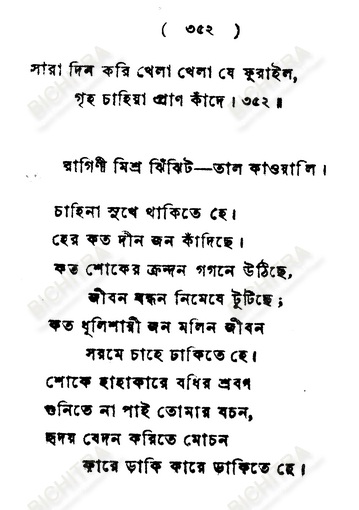 ( ৩৫২ )
সারা দিন করি খেলা খেলা যে ফুরাইল,
গৃহ চাহিয়া প্রাণ কাঁদে। ৩৫২॥
রাগিণী মিশ্র ঝিঁঝিট—তাল কাওয়ালি।
চাহিনা সুখে থাকিতে হে।
হের কত দীন জন কাঁদিছে।
কত শোকের ক্রন্দন গগনে উঠিছে,
জীবন বন্ধন নিমেষে টুটিছে;
কত ধূলিশায়ী জন মলিন জীবন
সরমে চাহে ঢাকিতে হে।
শোকে হাহাকারে বধির শ্রবণ
শুনিতে না পাই তোমার বচন,
হৃদয় বেদন করিতে মোচন
কারে ডাকি কারে ডাকিতে হে।
BICHITRA
BICHITRA
BICHITRA
BICHITRA
BICHITRA
BICHITRA